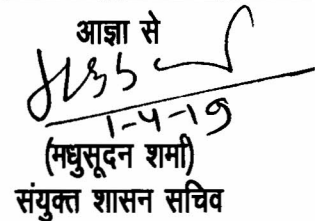 आज्ञा से
1-4-19
(मधुसूदन शर्मा)
संयुक्त शासन सचिव